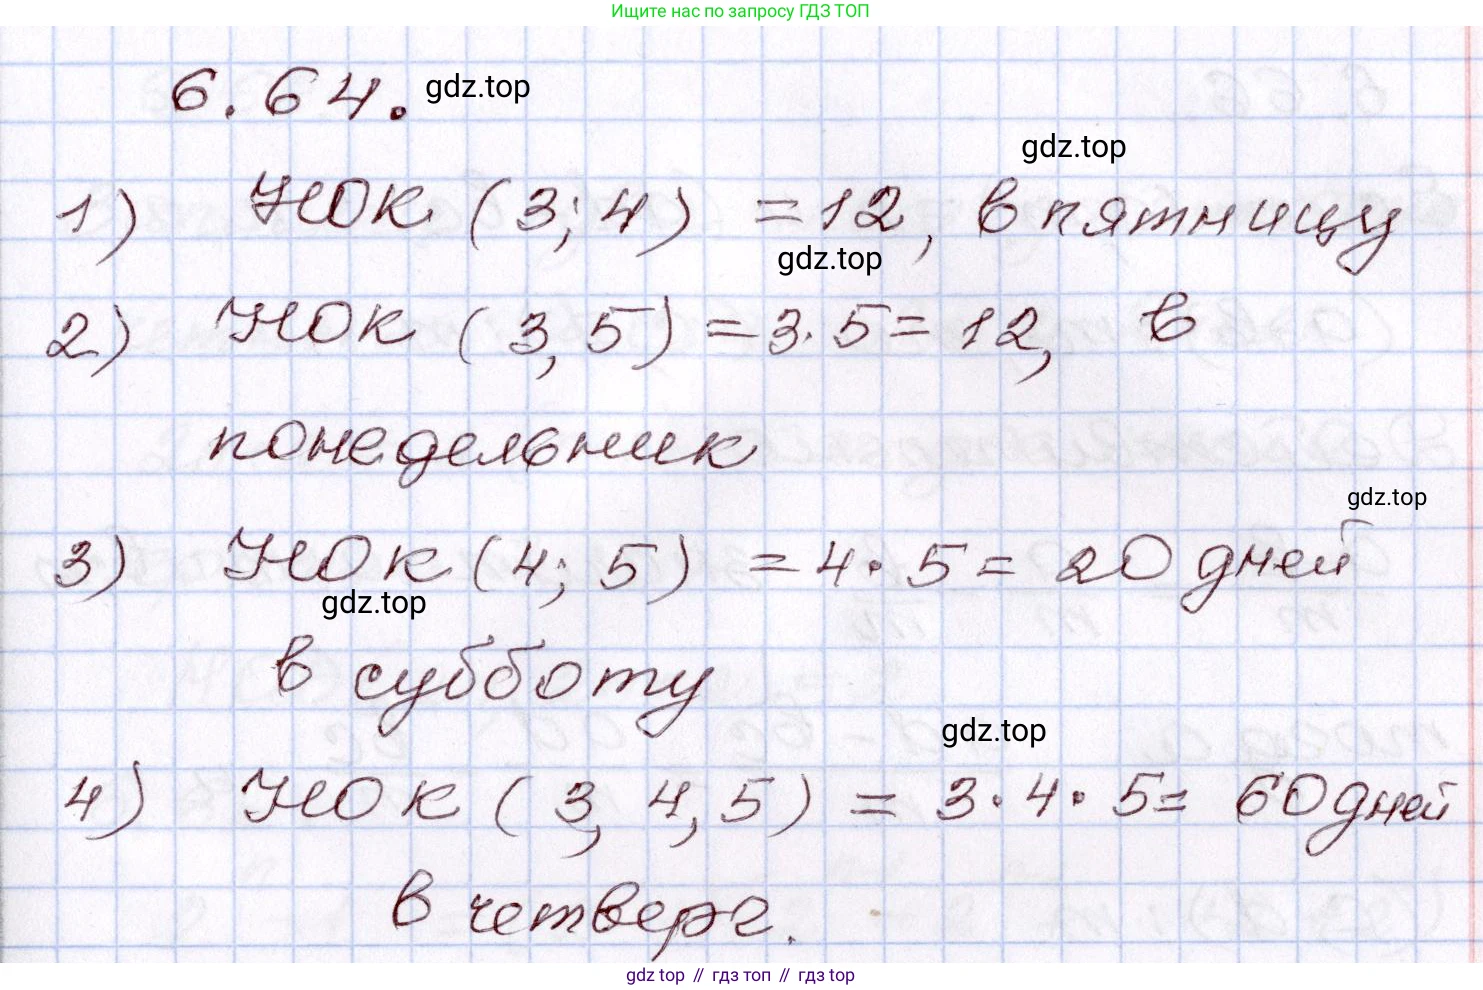 Ищите нас по запросу ГДЗ ТОП
6.64. gdz.top
gdz.top
1) НОК (3; 4) = 12, в пятницу
gdz.top
2) НОК (3, 5) = 3·5 = 12, в
понедельник
gdz.top
3) НОК (4; 5) = 4·5 = 20 дней
gdz.top
в субботу
gdz.top
4) НОК (3, 4, 5) = 3·4·5= 60 дней
в четверг.
gdz top // гдз топ // гдз top